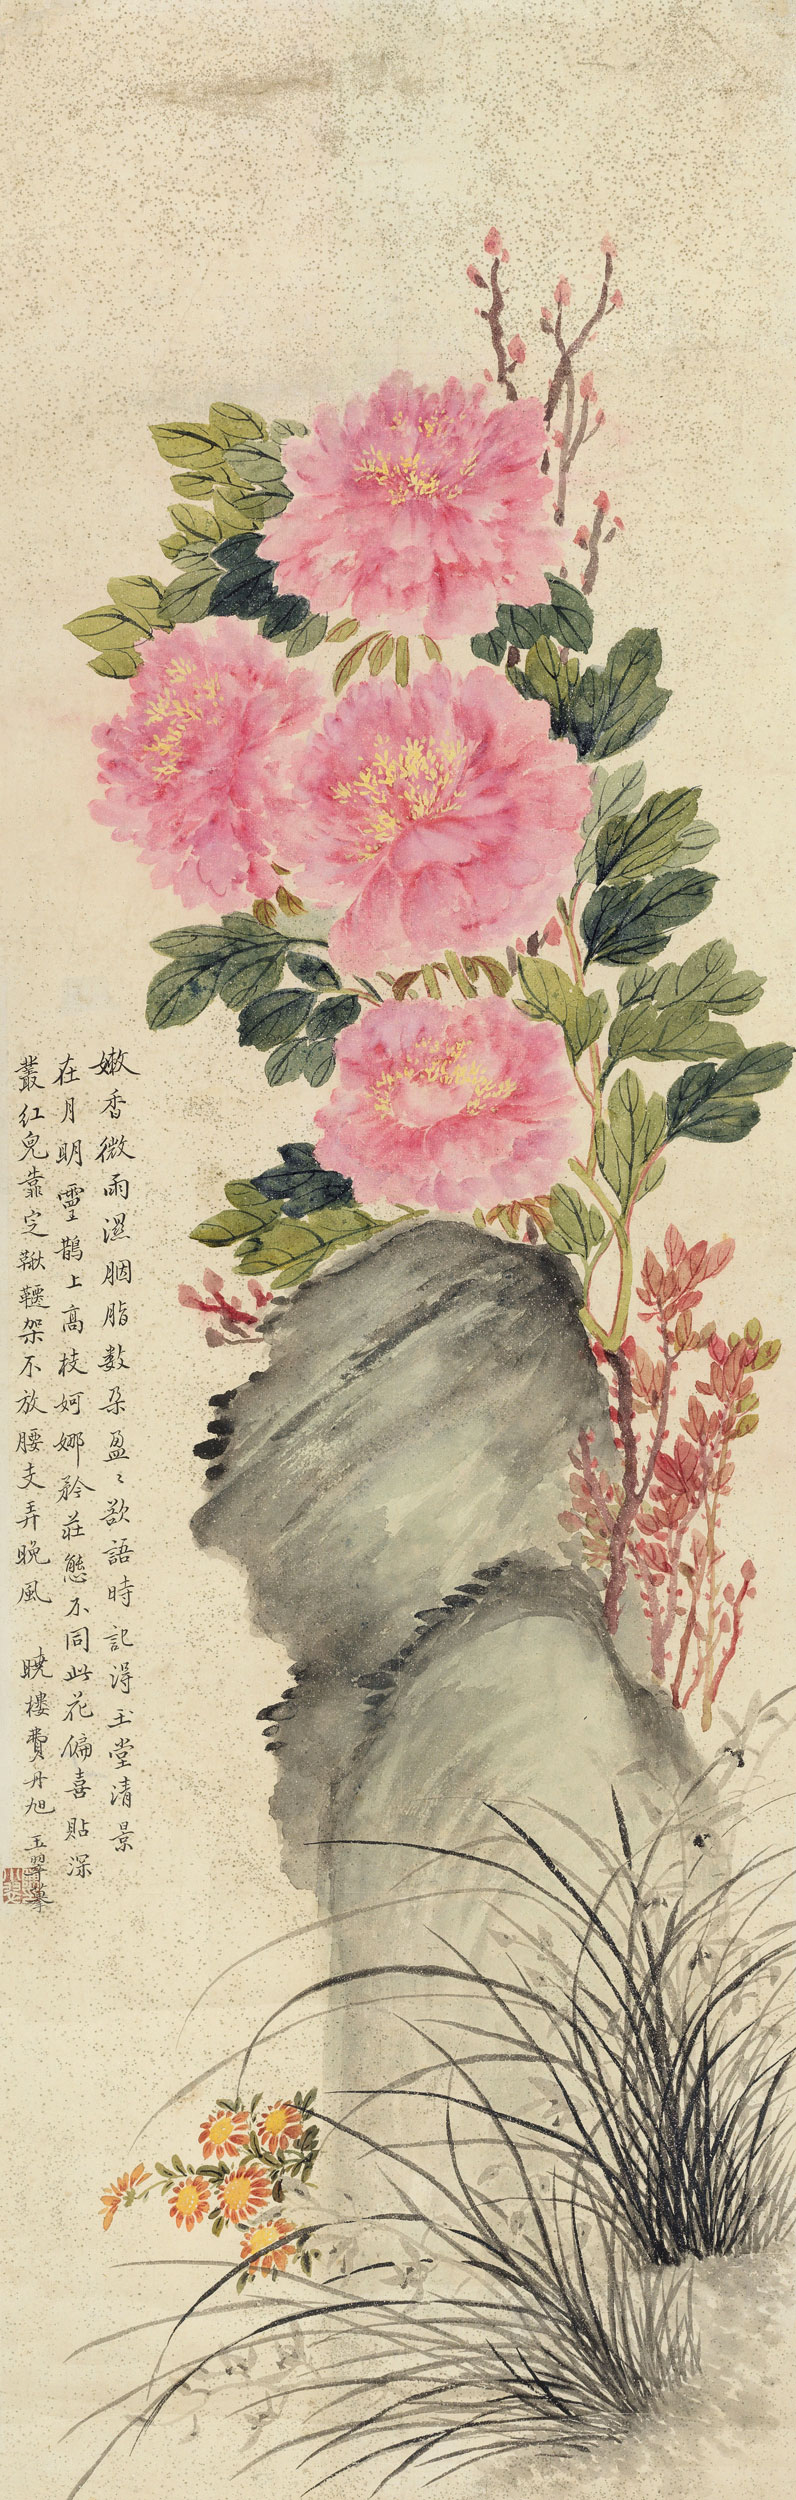 嫩香微雨濕胭脂數朵盈〻欲語時記得玉堂清景
在月明靈鵲上高枝婀娜矜莊態不同此花偏喜貼深
叢紅兒靠定鞦韆架不放腰支弄晚風　曉樓費丹旭
玉翠摹